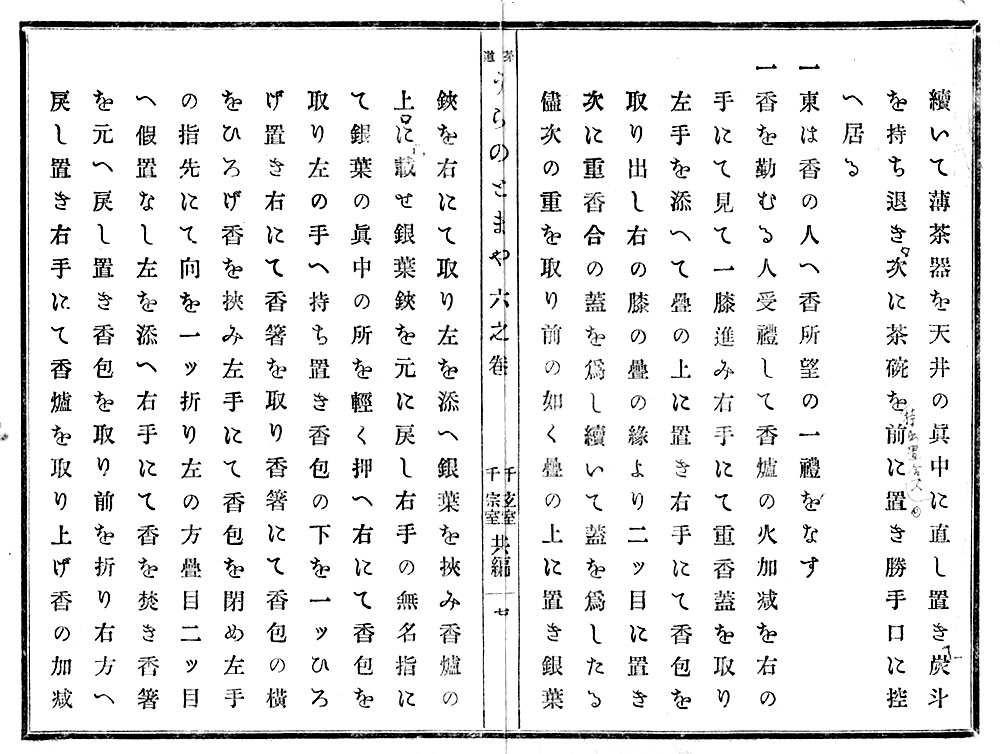 續いて薄茶器を天井の眞中に直し置き炭斗
を持ち退き次に茶碗を前に置き勝手口に控
へ居る
一東は香の人へ香所望の一禮をなす
一香を勤むる人受禮して香爐の火加減を右の
手にて見て一膝進み右手にて重香蓋を取り
左手を添へて疊の上に置き右手にて香包を
取り出し右の膝の疊の緣より二ッ目に置き
次に重香合の蓋を爲し續いて蓋を爲したる
儘次の重を取り前の如く疊の上に置き銀葉
茶道
うらのとまや六之卷
千玄室
千宗室
共編
廿
鋏を右にて取り左を添へ銀葉を挾み香爐の
上に載せ銀葉鋏を元に戾し右手の無名指に
て銀葉の眞中の所を輕く押へ右にて香包を
取り左の手へ持ち置き香包の下を一ッひろ
げ置き右にて香箸を取り香箸にて香包の橫
をひろげ香を挾み左手にて香包を閉め左手
の指先にて向を一ッ折り左の方疊目二ッ目
へ假置なし左を添へ右手にて香を焚き香箸
を元へ戾し置き香包を取り前を折り右方へ
戾し置き右手にて香爐を取り上げ香の加減